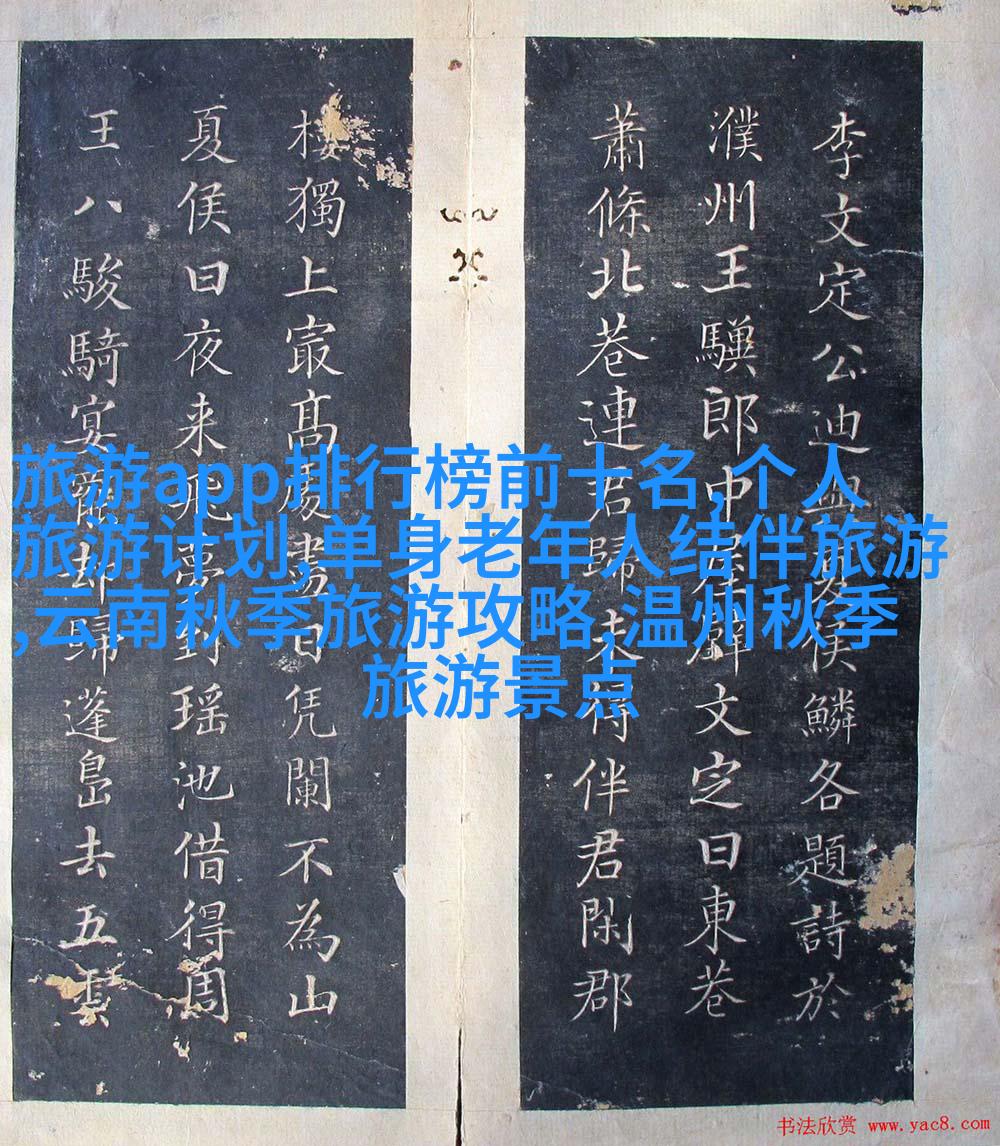 李文定公迪與夏侯鱗各題詩於
濮州王郎中屋壁文定曰東巷
蕭條北巷連君歸未得伴君閑郡
樓獨上㝡髙處盡日凭闌不為山
夏侯曰夜来飛夢到瑶池借得周
王八駿騎宴罷却歸蓬島去五雲
旅游app排行榜前十名,个人
旅游计划,单身老年人结伴旅游
,云南秋季旅游攻略,温州秋季
旅游景点
书法欣赏 www.yac8.com